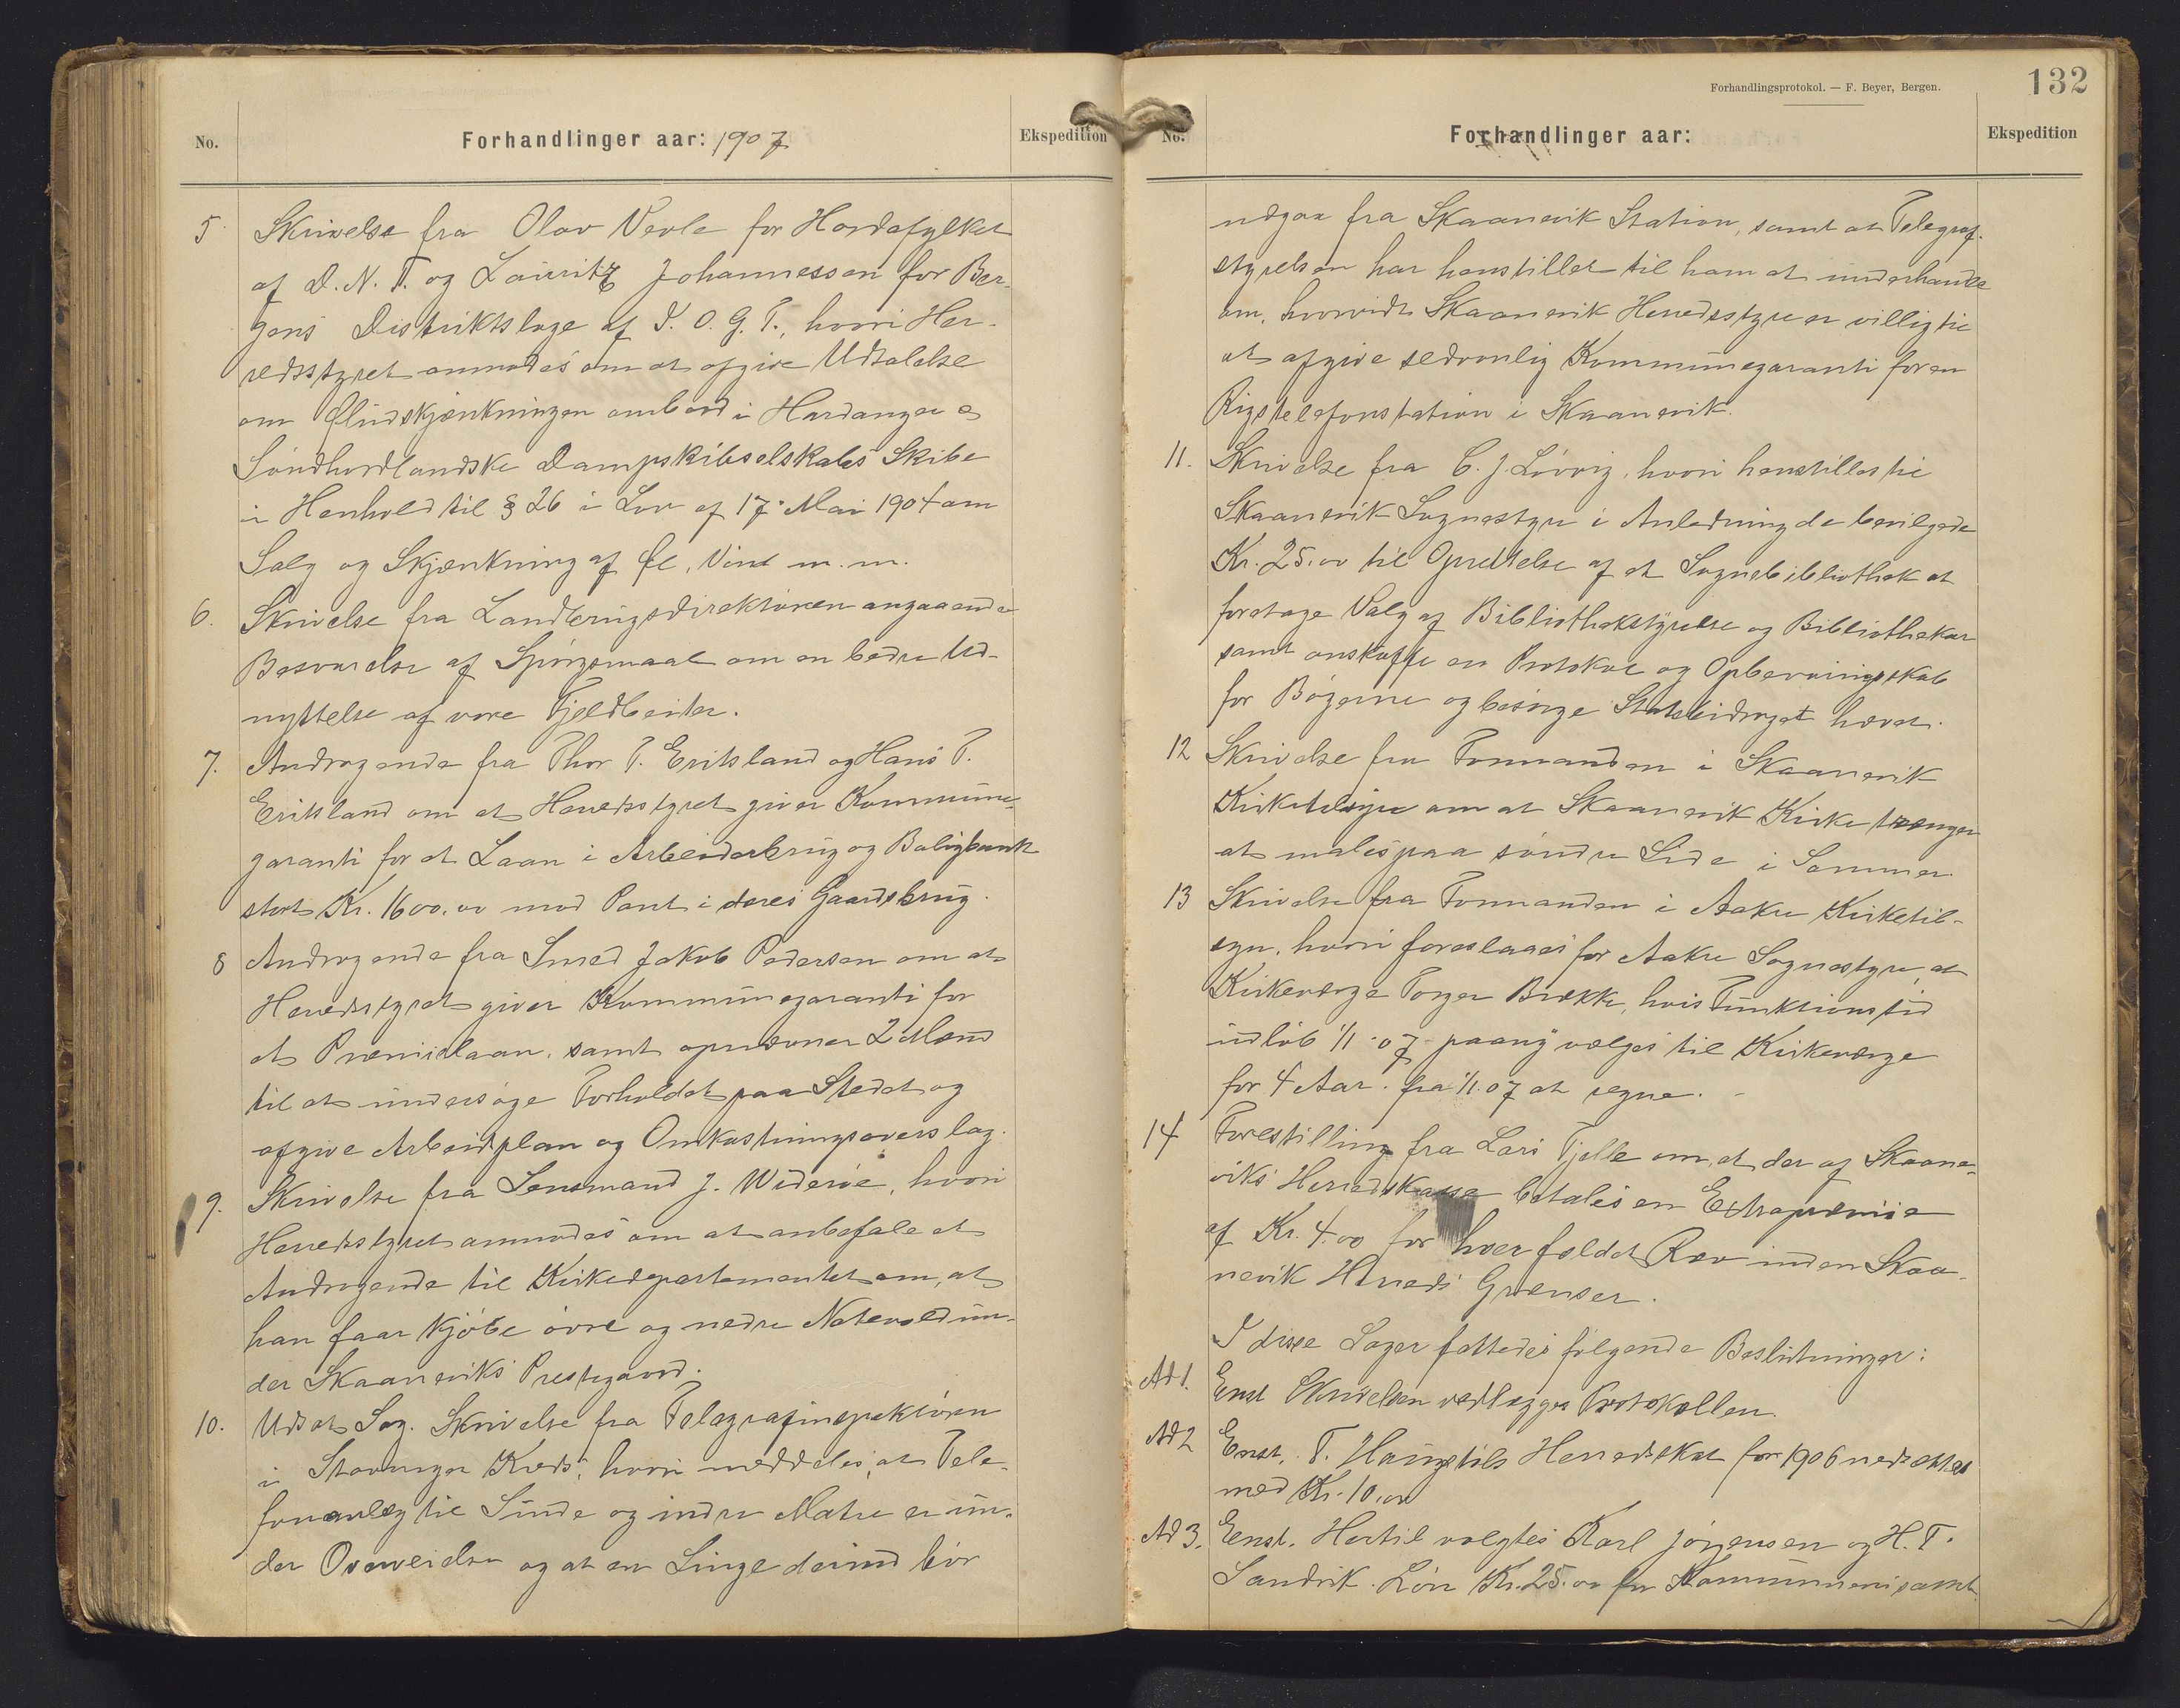 No.
Forhandlinger aar: 1907
Ekspedition
5. Skrivelse fra Olav Vevle for Hordafylket
af D. N. T. og Lauritz Johannessen for Ber-
gens Distriktsloge af I. O. G. T., hvori Her-
redsstyret anmodes om at afgive Udtalelse
om Øludskjænkningen ombord i Hardanger
Søndhordlandske Dampskibsselskabs Skibe
i Henhold til § 26 i Lov af 17. Mai 1904 om
Salg og Skjænkning af Øl, Vin m.m.
6. Skrivelse fra Landbrugsdirektøren angaaende
Besvarelse af Spørgsmaal om en bedre Ud-
nyttelse af vore Fjeldbeiter.
7. Andragende fra Thor T. Eritsland og Hans T.
Eritsland om at Herredsstyret giver Kommune-
garanti for et Laan i Arbeiderbrug og Boligbank
stort Kr. 1600.00 mod Pant i deres Gaardsbrug.
8 Andragende fra Smed Jakob Pedersen om at
Herredsstyret giver Kommunegaranti for
et Præmielaan, samt opnævner 2 Mænd
til at undersøge Forholdet paa Stedet og
afgive Arbeidsplan og Omkostningsoverslag.
9. Skrivelse fra Lensmand J. Widerøe, hvori
Herredsstyret anmodes om at anbefale et
Andragende til Kirkedepartementet om, at
han faar kjøbe øvre og nedre Notevold un-
der Skaaneviks Prestegaard.
10. Udsat Sag. Skrivelse fra Telegrafinspektøren
i Stavanger Kreds, hvori meddeles, at Tele-
fonanlæg til Sunde og indre Matre er un-
der Overveielse og at en Linge derind bør
Forhandlingsprotokol. — F. Beyer, Bergen.
132
No.
Forhandlinger aar:
Ekspedition
udgaa fra Skaanevik Station, samt at Telegraf-
styrelsen har henstillet til ham at underhandle
om, hvorvidt Skaanevik Herredsstyre er villig til
at afgive sedvanlig Kommunegaranti for en
Rigstelefonstation i Skaanevik.
11. Skrivelse fra C. J. Løvvig, hvori henstilles til
Skaanevik Sognestyre i Anledning de bevilgede
Kr. 25.00 til Oprettelse af et Sognebibliothek at
foretage Valg af Bibliothekstyrelse og Bibliothekar
samt anskaffe en Protokol og Opbevaringsskab
for Bøgerne og besørge Statsbidraget hævet.
12 Skrivelse fra Formanden i Skaanevik
Kirketilsyn om at Skaanevik Kirke trænger
at males paa søndre Side i Sommer.
13 Skrivelse fra Formanden i Aakre Kirketil-
syn, hvori foreslaaes for Aakre Sognestyre, at
Kirkeverge Torger Brække, hvis Funktionstid
udløb 1/1-07 paany vælges til Kirkeverge
for 4 Aar. fra 1/1.07 at regne.
14 Forestilling fra Lars Fjelle om, at der af Skaane-
viks Herredskasse betales en Extrapræmie
af Kr. 4.00 for hver fældet Ræv inden Skaa-
nevik Herreds Grænser.
I disse Sager fattedes følgende Beslutninger:
Ad 1. Enst. Skrivelsen vedlegges Protokollen.
Ad 2 Enst. T. Haugstils Herredskat for 1906 nedsættes
med Kr. 10.00
Ad 3. Enst. Hertil valgtes Karl Jørgensen og H. T.
Sandvik. Løn Kr. 25.00 for Kommunen samt